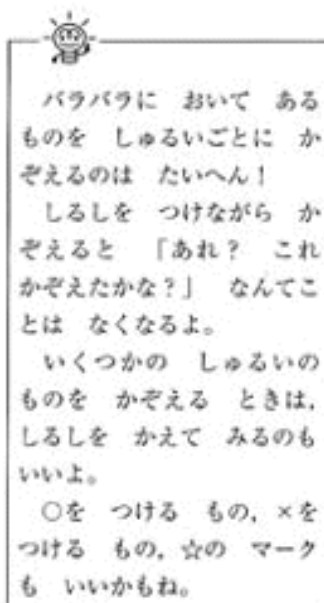 バラバラに　おいて　ある
ものを　しゅるいごとに　か
ぞえるのは　たいへん！
しるしを　つけながら　か
ぞえると　「あれ？　これ
かぞえたかな？」　なんてこ
とは　なくなるよ。
いくつかの　しゅるいの
ものを　かぞえる　ときは，
しるしを　かえて　みるのも
いいよ。
○を　つける　もの，×を
つける　もの，☆の　マーク
も　いいかもね。